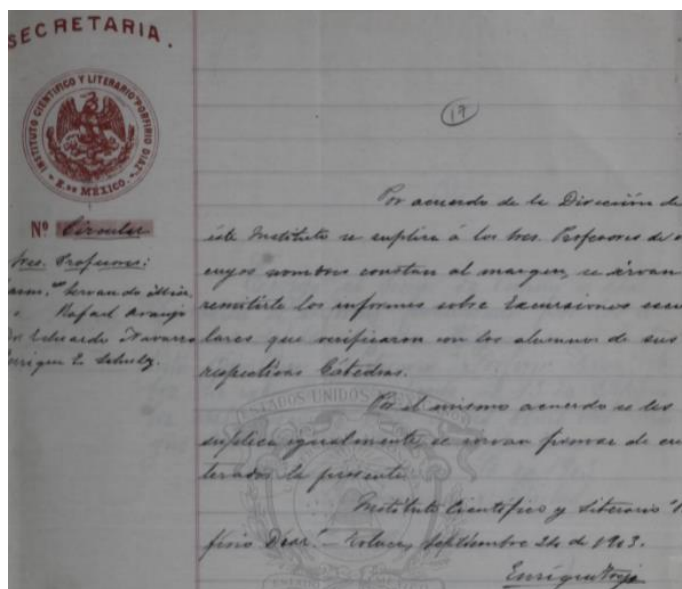 SECRETARIA.
INSTITUTO CIENTIFICO Y LITERARIO "PORFIRIO DIAZ"
E. DE MEXICO.
Nº Circular
Sres. Profesores:
Servando
Rafael Araujo
Eduardo Navarro
Enrique E. Schulz.
19
Por acuerdo de la Dirección de
éste Instituto se suplica á los Sres. Profesores de
cuyos nombres constan al margen, se sirvan
remitirle los informes sobre Excursiones esco
lares que verificaron con los alumnos de sus
respectivas Cátedras.
Por el mismo acuerdo se les
suplica igualmente, se sirvan firmar de en
terados la presente.
Instituto Científico y Literario "
firio Diaz". - Toluca, Septiembre 24 de 1903.
Enrique
ESTADOS UNIDOS MEXICANOS
ESTADO DE MEXICO